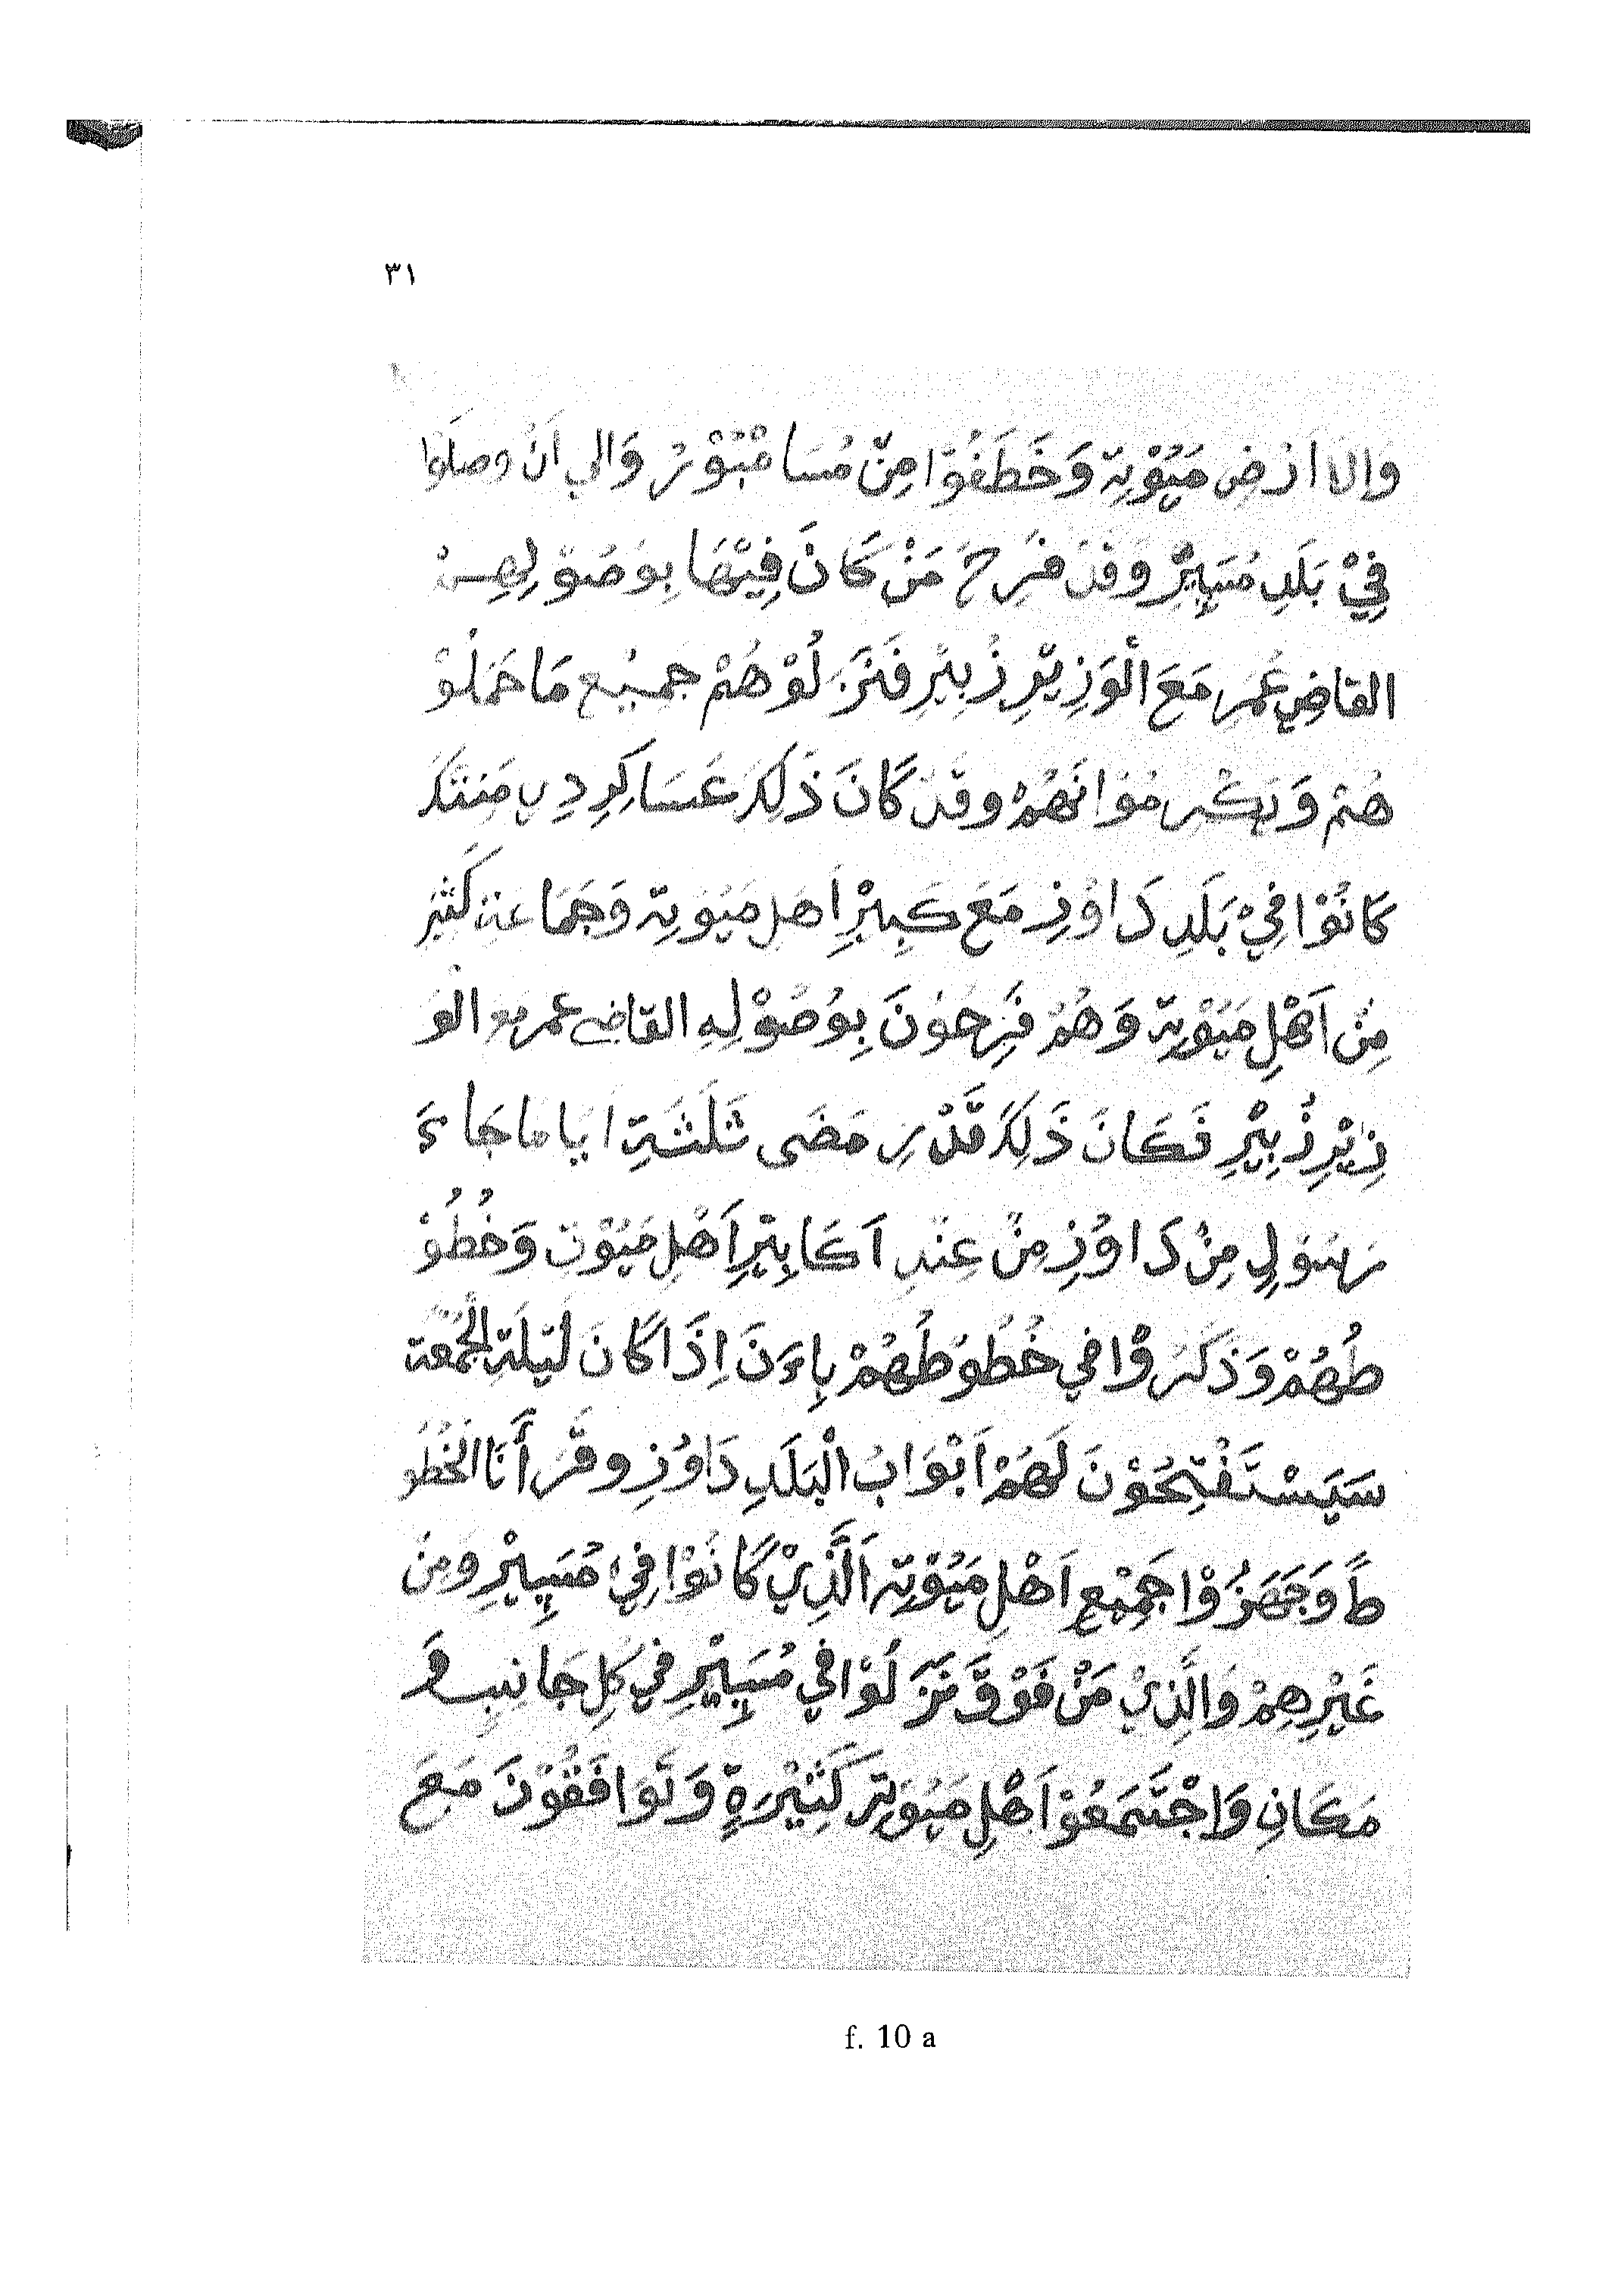 ٣١
وَاِلَا اَرْضِ مَيُوْبَة وَخَطَفُوْا مِنْ مُسَامْبُوْرُ وَالي اَنْ وصلَوْا
فِيْ بَلَدِ مُسَبِيْرِ وَقَدْ فَرِحَ مَنْ كَانَ فِيْهَا بِوَصُوْلِهِمْ
القاضِي عُمَر مَعَ الْوَزِيْرِ زُبِيْرِ فَنَزَلُوْهُمْ جَمِيْع مَا حَمَلُوْ
هُمْ وَ وقَدْ كَانَ ذَلِكَ عَسَاكِرِ دِي مَنتَكَ
كَانُوْا فِيْ بَلَدِ دَاوُدِ مَعَ كَبِيْرِ اَهل مَيُوْبَة وَجَمَاعة كَثِيْر
مِنْ اَهْلِ مَيُوْبَة وَهُمْ فَرِحُوْنَ بِوُصُوْلِهِ القاضي عمر مع الو
زِيْرِ زُبِيْرِ فَكَانَ ذَلِكَ قَدْرِ مَضَى ثَلَثَةِ اَيَاما جَاءَ
رَسُوْلِ مِنْ دَاوُدِ مِنْ عِنْدِ اَكَابِيْرِ اَهْلِ مَيُوْبَة وَخُطُوْ
طُهُمْ وَذَكَرُوْا في خُطُوْطُهُمْ بِاءَنَ اِذَا كَانَ لَيْلَةِ الْجُمْعَة
سَيَسْتَفْتِحُوْنَ لَهُمْ اَبْوَابُ الْبَلَدِ دَاوُدِ وقَرَأْنَا الْخُطُو
طً وَجَهَزُوْا جَمِيْعِ اَهْلِ مَيُوْبَة اَلَّذِيْ كَانُوْا فِيْ مُسَبِيْرِ وَمِنْ
غَيْرِهِمْ وَالَّذِيْ مَنْ فَوْقَ نَزَلُوْا فِي مُسَبِيْرِ فِي كُلِ جَانِبِ وَ
مَكَانِ وَاجْتَمَعُوْا اَهْلِ مَيُوْبَة كَثِيْرَةِ وَتَوَافَقُوْنَ مَعَ
f. 10 a